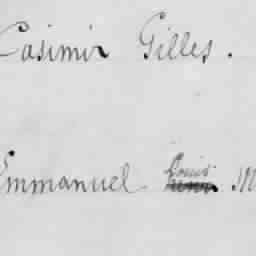 Casimir Gilles.
Emmanuel Louis M